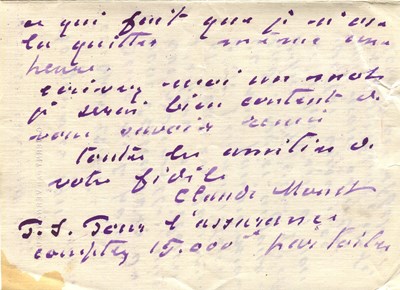 ce qui fait que je n'ose
la quitter même une
heure.
écrivez-moi un mot
je serai bien content de
vous savoir remis
toutes les amitiés de
votre fidèle
Claude Monet
P.S. Pour l'assurance
comptez 15.000 par toile